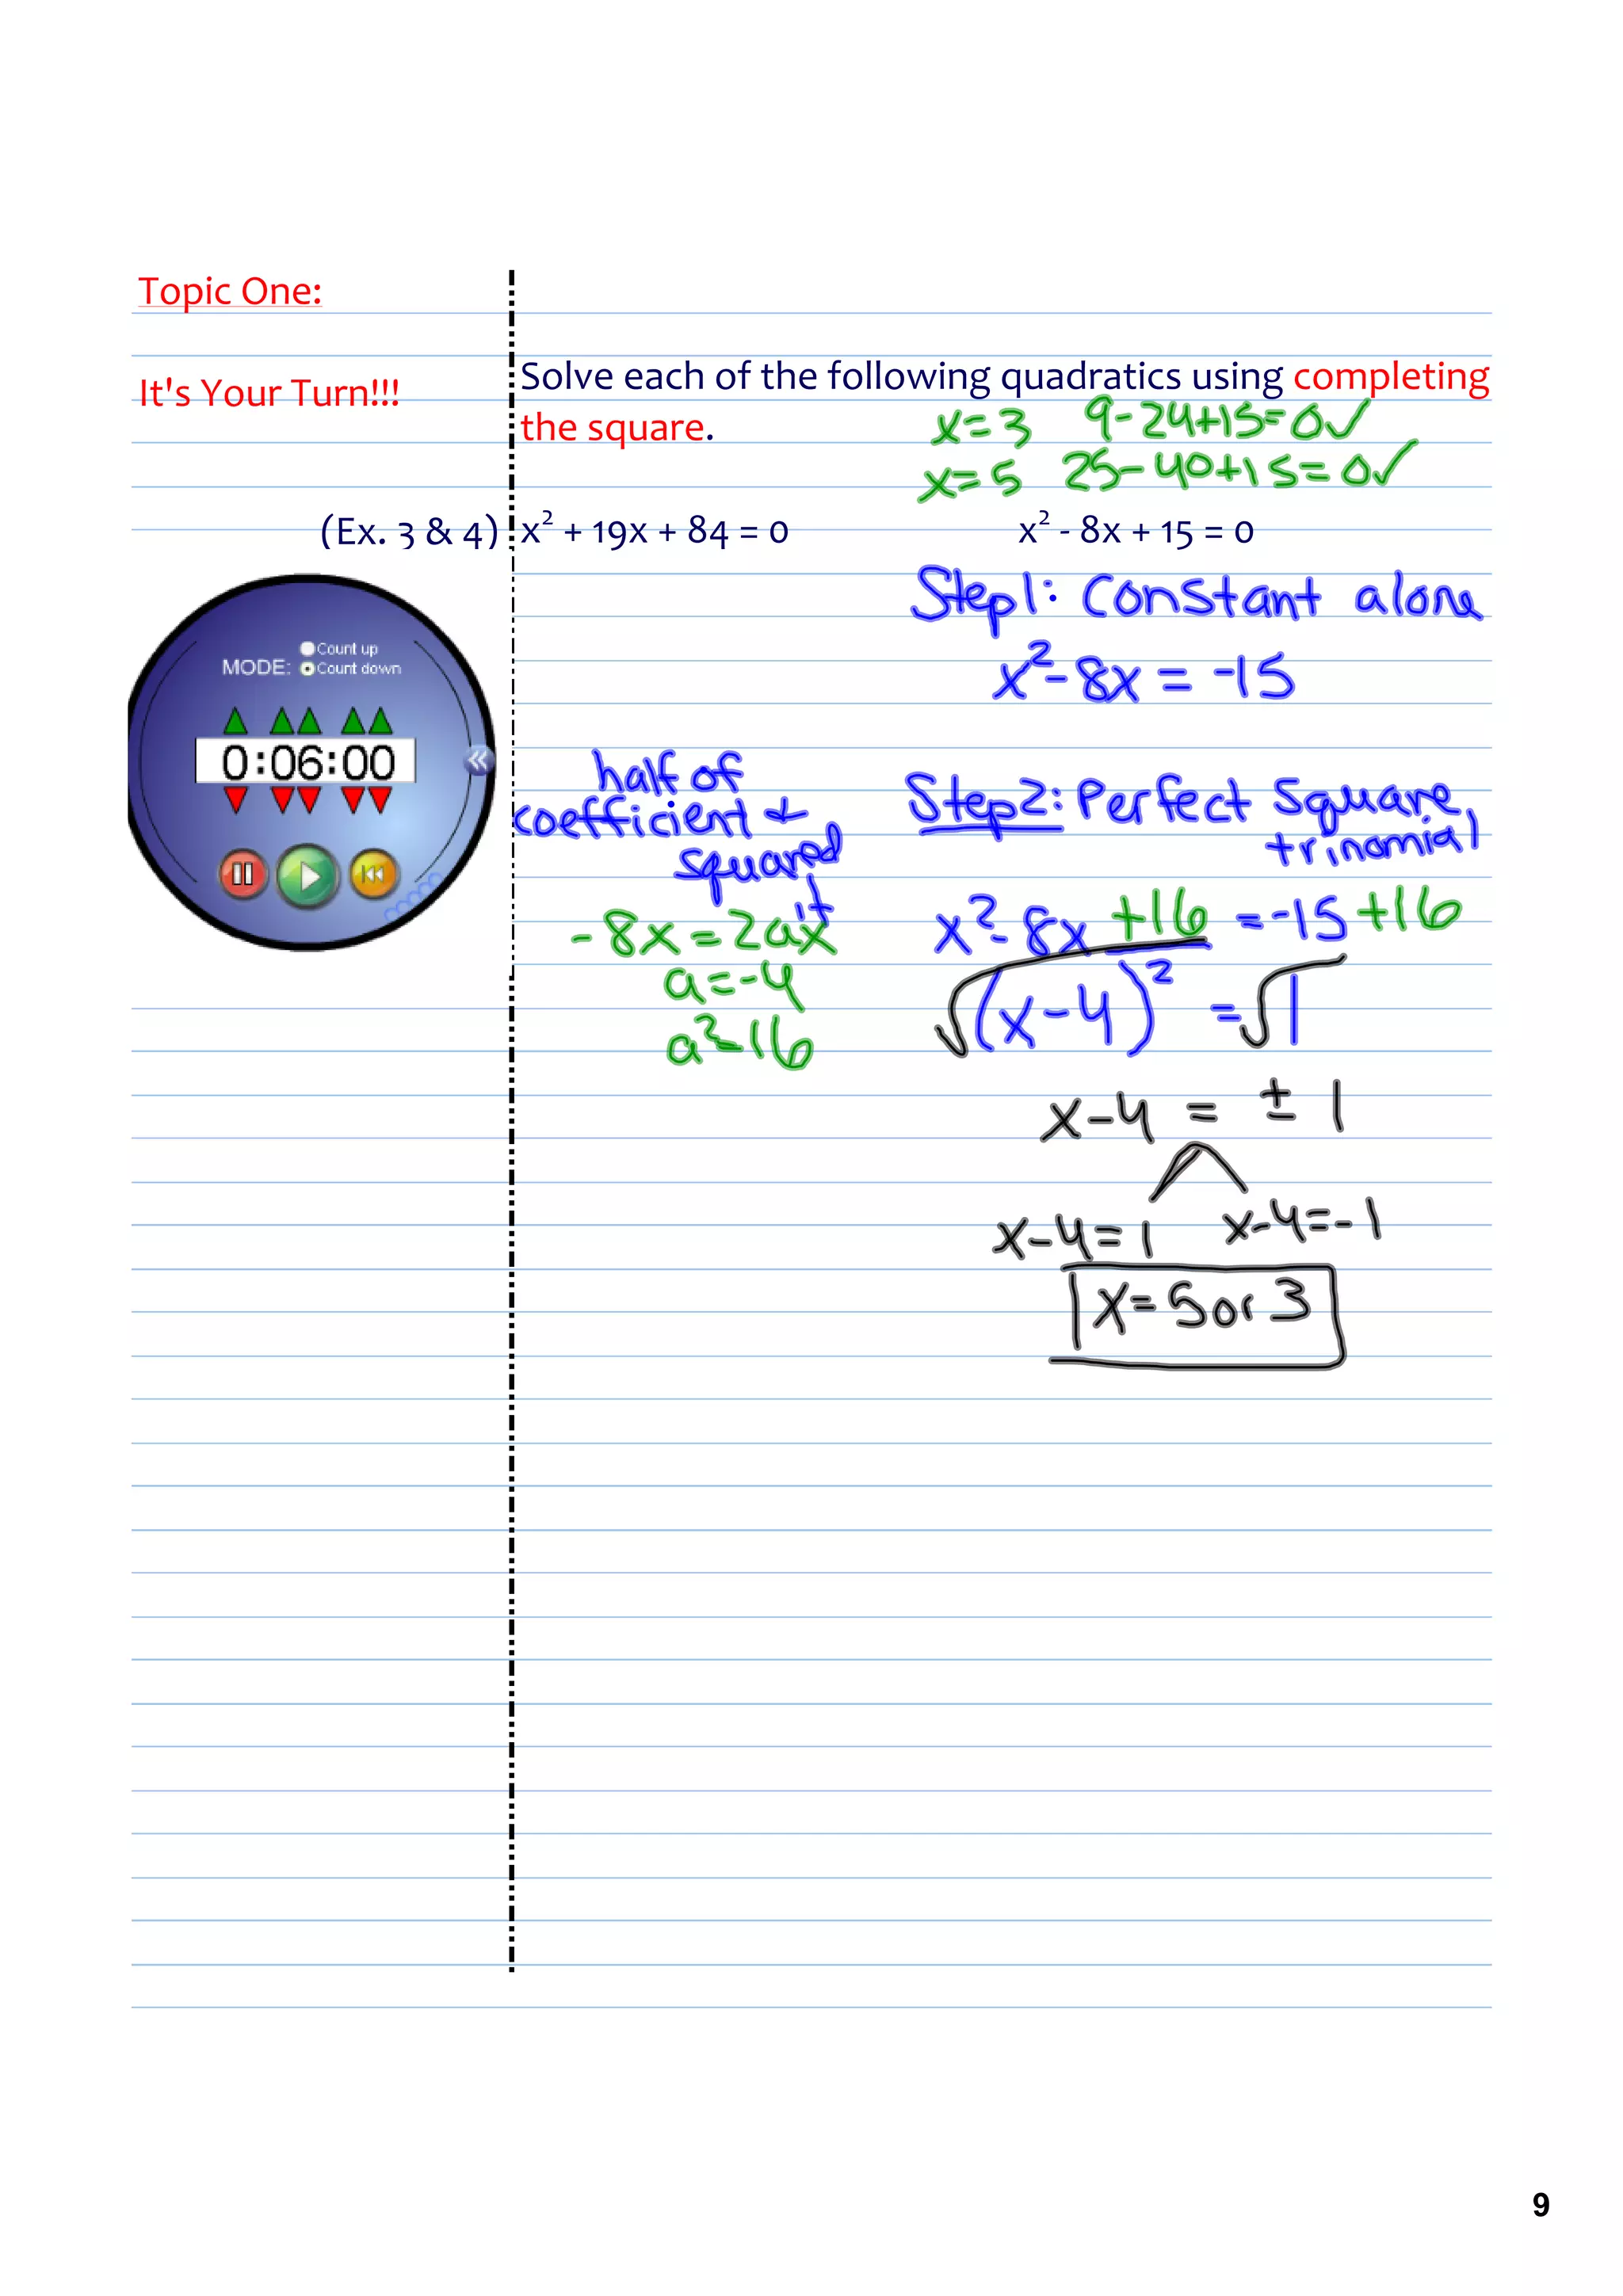 Topic One:
It's Your Turn!!!
Solve each of the following quadratics using completing
the square.
x=3 9-24+15=0✓
x=5 25-40+15=0✓
(Ex. 3 & 4) x² + 19x + 84 = 0
x² - 8x + 15 = 0
Step1: Constant alone
x²-8x = -15
MODE:
Count up
Count down
0:06:00
half of
coefficient &
squared
it
-8x=2ax
a=-4
a²=16
Step2: Perfect Square
trinomial
x²-8x +16 =-15 +16
√(x-4)² =√1
x-4 = ± 1
x-4=1 x-4=-1
x=5 or 3
9